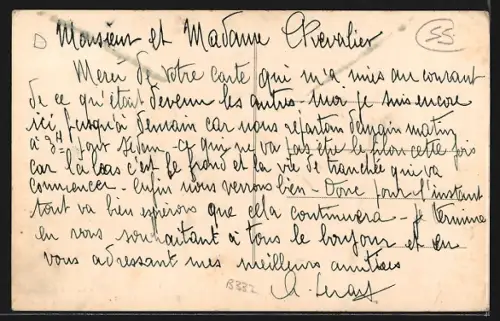 D Monsieur et Madame Chevalier 55
Merci de votre carte qui m'a mis au courant
de ce qu'était devenu les autres - moi je suis encore
ici jusqu'à demain car nous repartons demain matin
à 3H pour - ce qui ne va pas être le filon cette fois
car là bas c'est le froid et la vie de tranchée qui va
commencer - enfin nous verrons bien - Donc pour l'instant
tout va bien espérons que cela continuera - Je termine
en vous souhaitant à tous le bonjour et en
vous adressant mes meilleurs amitiés
B332